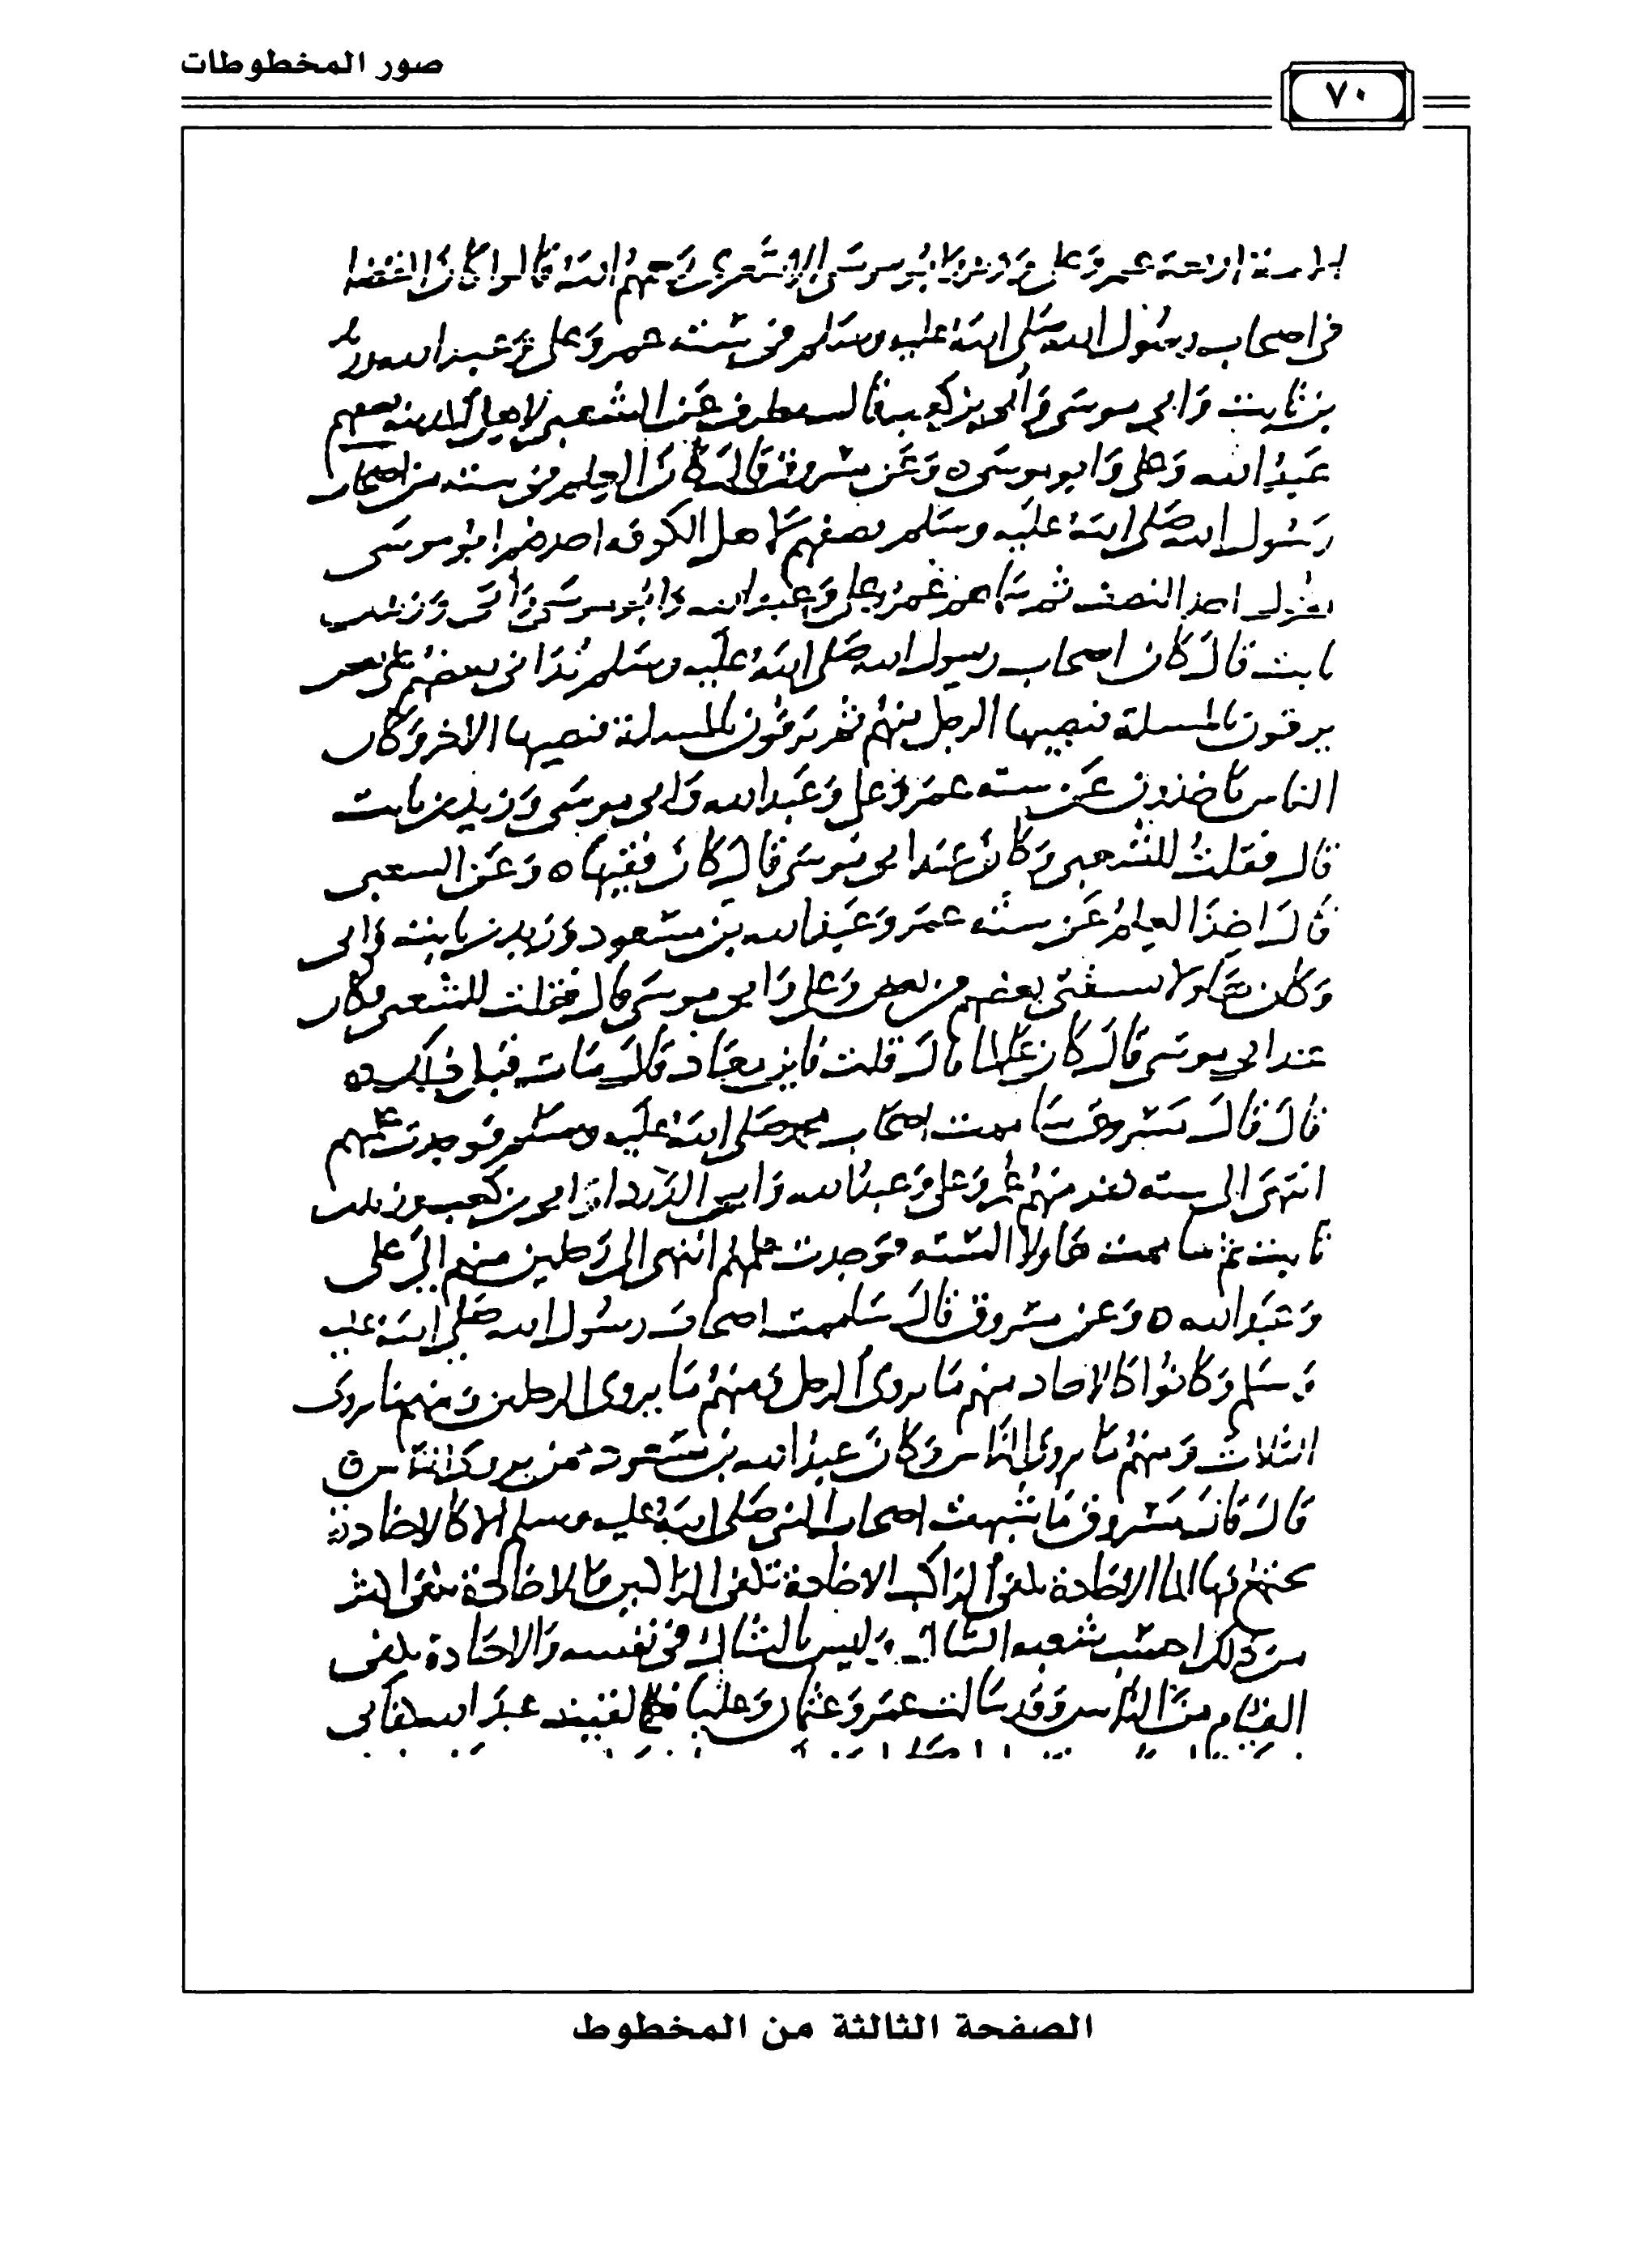 صور المخطوطات
٧٠
الامة اربعة عمر وعلى وزيد وابو موسى الاشعرى قالوا كان القضا
فى اصحاب رسول الله صلى الله عليه وسلم فى ستة عمر وعلى وعبد الله وزيد
بن ثابت وابى موسى وأبى بن كعب قال مطرف عن الشعبى لاهل الكوفة نصفهم
عبد الله وعلى وابو موسى ه وعن مسروق قال كان العلم فى ستة من اصحاب
رسول الله صلى الله عليه وسلم نصفهم لاهل الكوفه احدهم ابو موسى
هذا النصف ثم عمر وعلى وعبد الله وابو موسى وأبى وزيد بن
ثابت قال كان اصحاب رسول الله صلى الله عليه وسلم بعضهم على بعض
يرفون بالمسلة فيصيبها الرجل منهم ثم يرفون بالمسلة فيصيبها الاخر وكان
الناس ياخذون عن سته عمر وعلى وعبد الله وابى موسى وزيد بن ثابت
قال فقلت للشعبى وكان عند ابى موسى قال كان فقيها ه وعن الشعبى
قال اخذ العلم عن سته عمر وعبد الله بن مسعود وزيد بن ثابت وابى
وكان هولا يستفتى بعضهم من بعض وعلى وابو موسى قال فقلت للشعبى وكان
عند ابى موسى قال كان عالما قال قلت فاين معاذ قال مات قبل ذلك ه
قال قال مسروق شاممت اصحاب محمد صلى الله عليه وسلم فوجدت علمهم
انتهى الى سته نفر منهم عمر وعلى وعبد الله وابى الدرداء وابى بن كعب وزيد بن
ثابت ثم شاممت هاولا الستة فوجدت علمهم انتهى الى رجلين منهم الى على
وعبد الله ه وعن مسروق قال شاممت اصحاب رسول الله صلى الله عليه
وسلم وكانوا كالاخاد منهم ما يروى الرجل ومنهم ما يروى الرجلين ومنهم ما يروى
الثلاث ومنهم ما يروى الناس وكان عبد الله بن مسعود ممن يروى الناس ه
قال قال مسروق ما شبهت اصحاب النبى صلى الله عليه وسلم الا كالاخاذة
الاخاذة تكفى الراكب الاخاذة تكفى الراكبين والاخاذة
من ذلك احسب شعبه الشاك وليس بالشاك فى نفسه والاخاذة يكفى
الفئام من الناس وقد سالت عمر وعثمان وعليا فلم القيت عبد الله كفانى
الصفحة الثالثة من المخطوط